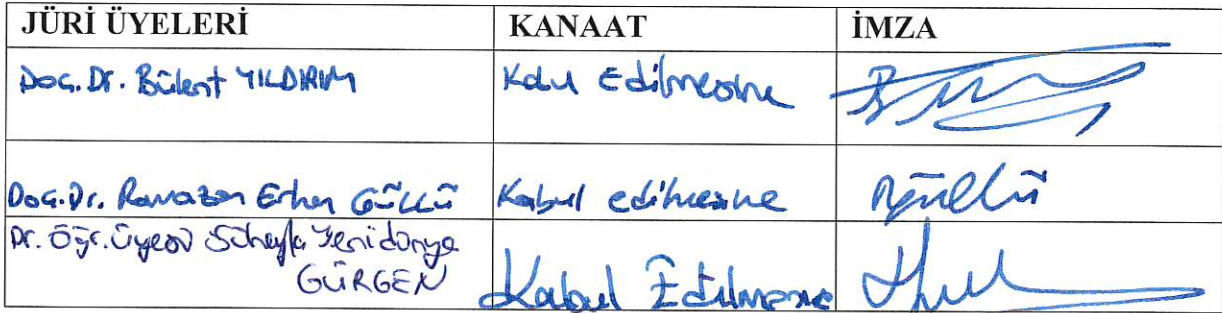 JÜRİ ÜYELERİ KANAAT İMZA
Doç. Dr. Bülent YILDIRIM Kabul Edilmesine
Doç. Dr. Ramazan Erhan GÜLLÜ Kabul edilmesine Rgüllü
Dr. Öğr. Üyesi Süheyla Yenidünya
GÜRGEN Kabul Edilmesine